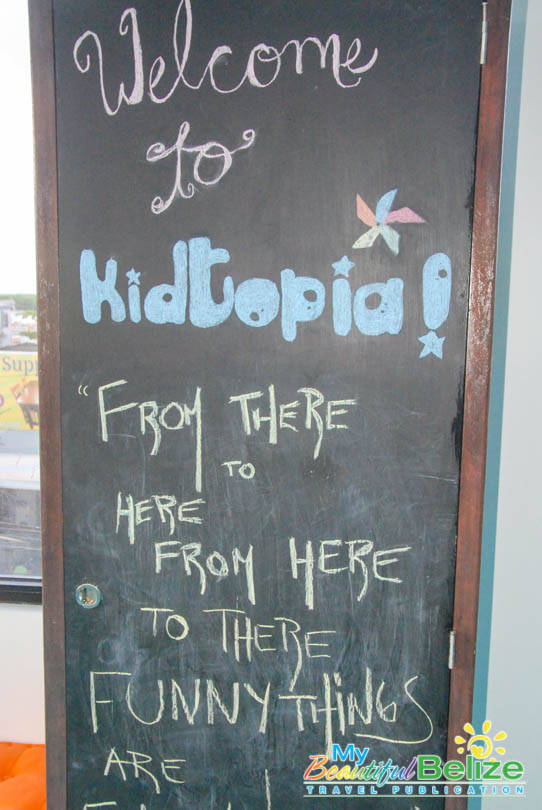 Welcome
to
Kidtopia!
"FROM THERE
TO
HERE
FROM HERE
TO THERE
FUNNY THINGS
ARE
Supp
My
Beautiful Belize
TRAVEL PUBLICATION